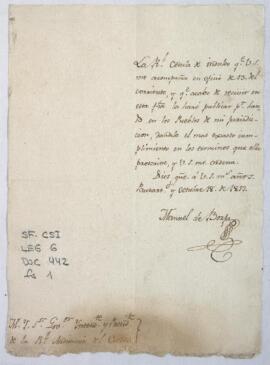 La Rl. Cedula de indulto qe. V. S.
me acompaña en oficio de 13. del
corriente, y qe. acabo de recivir en
esta fha. la haré publicar pr. ban-
do en los Pueblos de mi jurisdic-
cion, dandole el mas exacto cum-
plimiento en los terminos que ella
prescrive, y V. S. me ordena.
Dios gue. á V. S. ms. años.
Octubre 18. de 1817.
Manuel de
SF. CSI
LEG 6
DOC 442
fs 1
M. Y. Sr. Gov.or Yntend.te y Presid.te
de la Rl. Audiencia del Cuzco